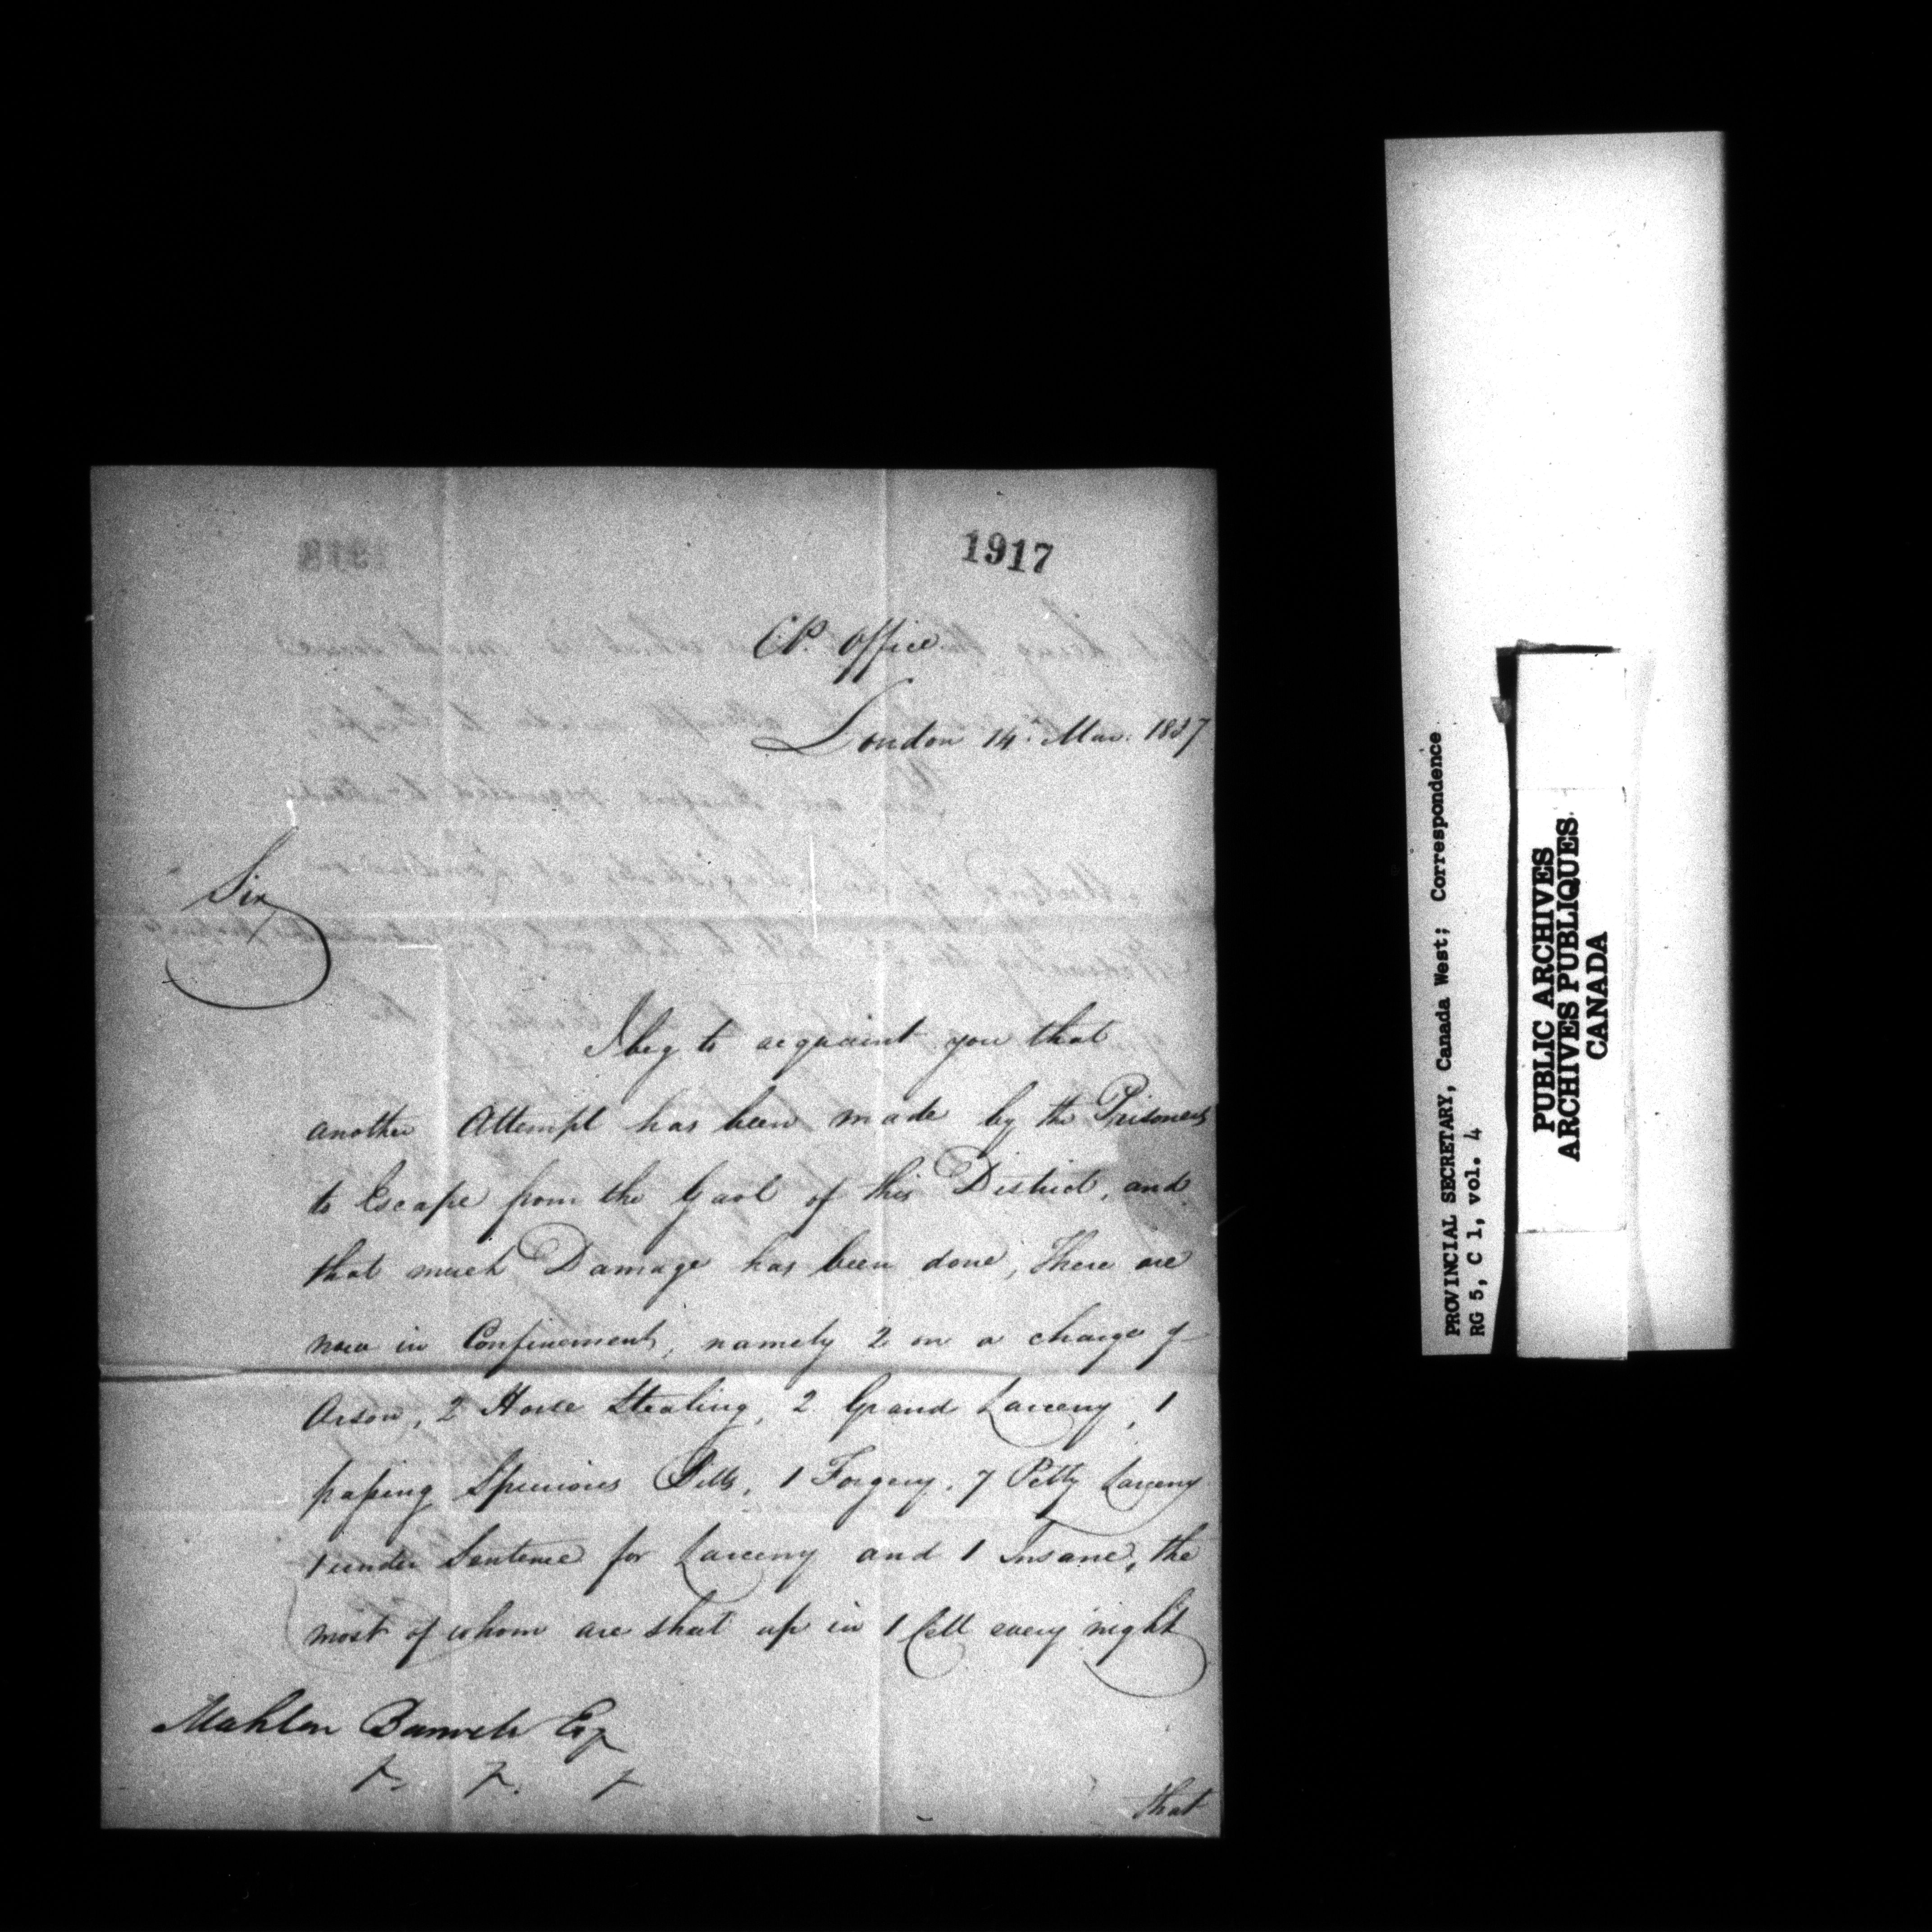 1917
C.P. Office
London 14th Mar. 1837
Sir
I beg to acquaint you that
another Attempt has been made by the Prisoners
to Escape from the Gaol of this District, and
that much Damage has been done, There are
now in Confinement, namely 2 on a charge of
Arson, 2 Horse Stealing, 2 Grand Larceny, 1
passing Spurious Bills, 1 Forgery, 7 Petty Larceny
1 under Sentence for Larceny and 1 Insane, the
most of whom are shut up in 1 Cell every night
Mahlon Burwell Esq
that
PROVINCIAL SECRETARY, Canada West; Correspondence
RG 5, C 1, vol. 4
PUBLIC ARCHIVES
ARCHIVES PUBLIQUES
CANADA